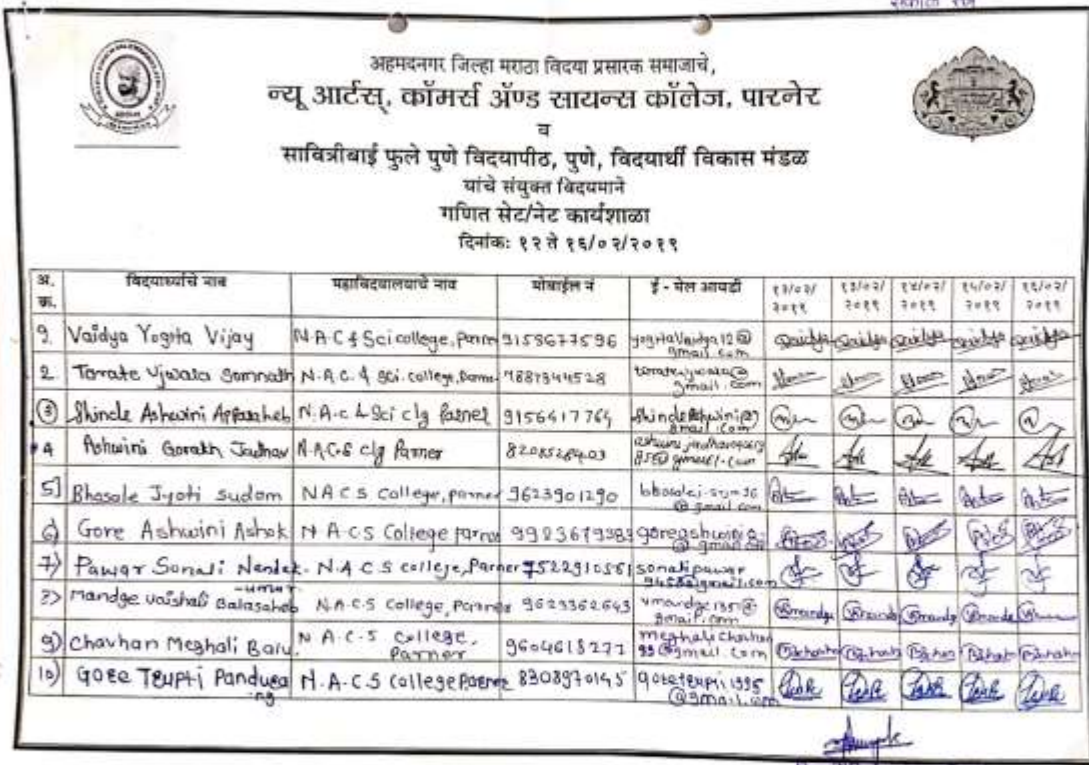 अहमदनगर जिल्हा मराठा विदया प्रसारक समाजाचे,
न्यू आर्टस्, कॉमर्स ॲण्ड सायन्स कॉलेज, पारनेर
व
सावित्रीबाई फुले पुणे विदयापीठ, पुणे, विदयार्थी विकास मंडळ
यांचे संयुक्त विदयमाने
गणित सेट/नेट कार्यशाळा
दिनांक: १२ ते १६/०२/२०१९
अ. क्र. विदयार्थ्याचे नाव महाविदयालयाचे नाव मोबाईल नं ई - मेल आयडी १२/०२/२०१९ १३/०२/२०१९ १४/०२/२०१९ १५/०२/२०१९ १६/०२/२०१९
१. Vaidya Yogita Vijay N.A.C & Sci college, Parner 9158677596
2 Tarate Ujwala Somnath N.A.C. & Sci. college, Parner 7887344528
③ Shinde Ashwini Appasaheb N.A.C & Sci clg Parner 9156417764
4 Ashwini Gorakh Jadhav N.A.C.S clg Parner
5] Bhosale Jyoti Sudam NACS College, Parner 9623901290
6) Gore Ashwini Ashok N A.C.S College Parner
7) Pawar Sonali Nandak-umar N.A.C S college, Parner 7522910561 sonalipawar
8) Mandge Vaishali Balasaheb N.A.C.S College, Parner 9623362643 vmandge135@gmail.com
9) Chavhan Meghali Baru N A.C.S College. Parner 9604618277 meghalichavhan99@gmail.com
10) Gore Trupti Pandurang N.A.C.S College Parner 8308970145 goretrupti1995@gmail.com